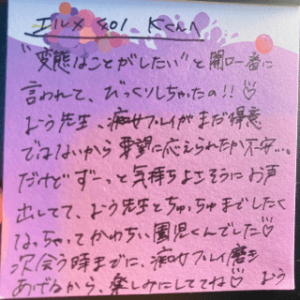 エルメ 801 Kくんへ
"変態なことがしたい"と開口一番に
言われて、びっくりしちゃったの!!♡
よう先生、痴女プレイがまだ得意
ではないから要望に応えられたか不安…。
だけどずーっと気持ちよさそうにお声
出してて、よう先生とちゅっちゅまでしたく
なっちゃってかわちい園児くんでした♡
次会う時までに、痴女プレイ磨き
あげるから、楽しみにしててね♡ よう